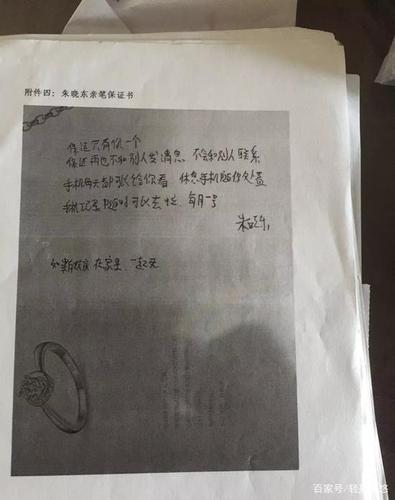 附件四：朱晓东亲笔保证书
保证只有你一个
保证再也不和别人发消息，不会和别人联系
手机每天都可以给你看，休息手机随你处置
手机 随时可以去 每月一号
朱晓东
如 在家里，一起
百家号/轻